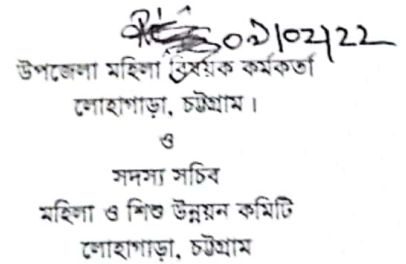 ০৩/০২/২২
উপজেলা মহিলা বিষয়ক কর্মকর্তা
লোহাগাড়া, চট্টগ্রাম।
ও
সদস্য সচিব
মহিলা ও শিশু উন্নয়ন কমিটি
লোহাগাড়া, চট্টগ্রাম